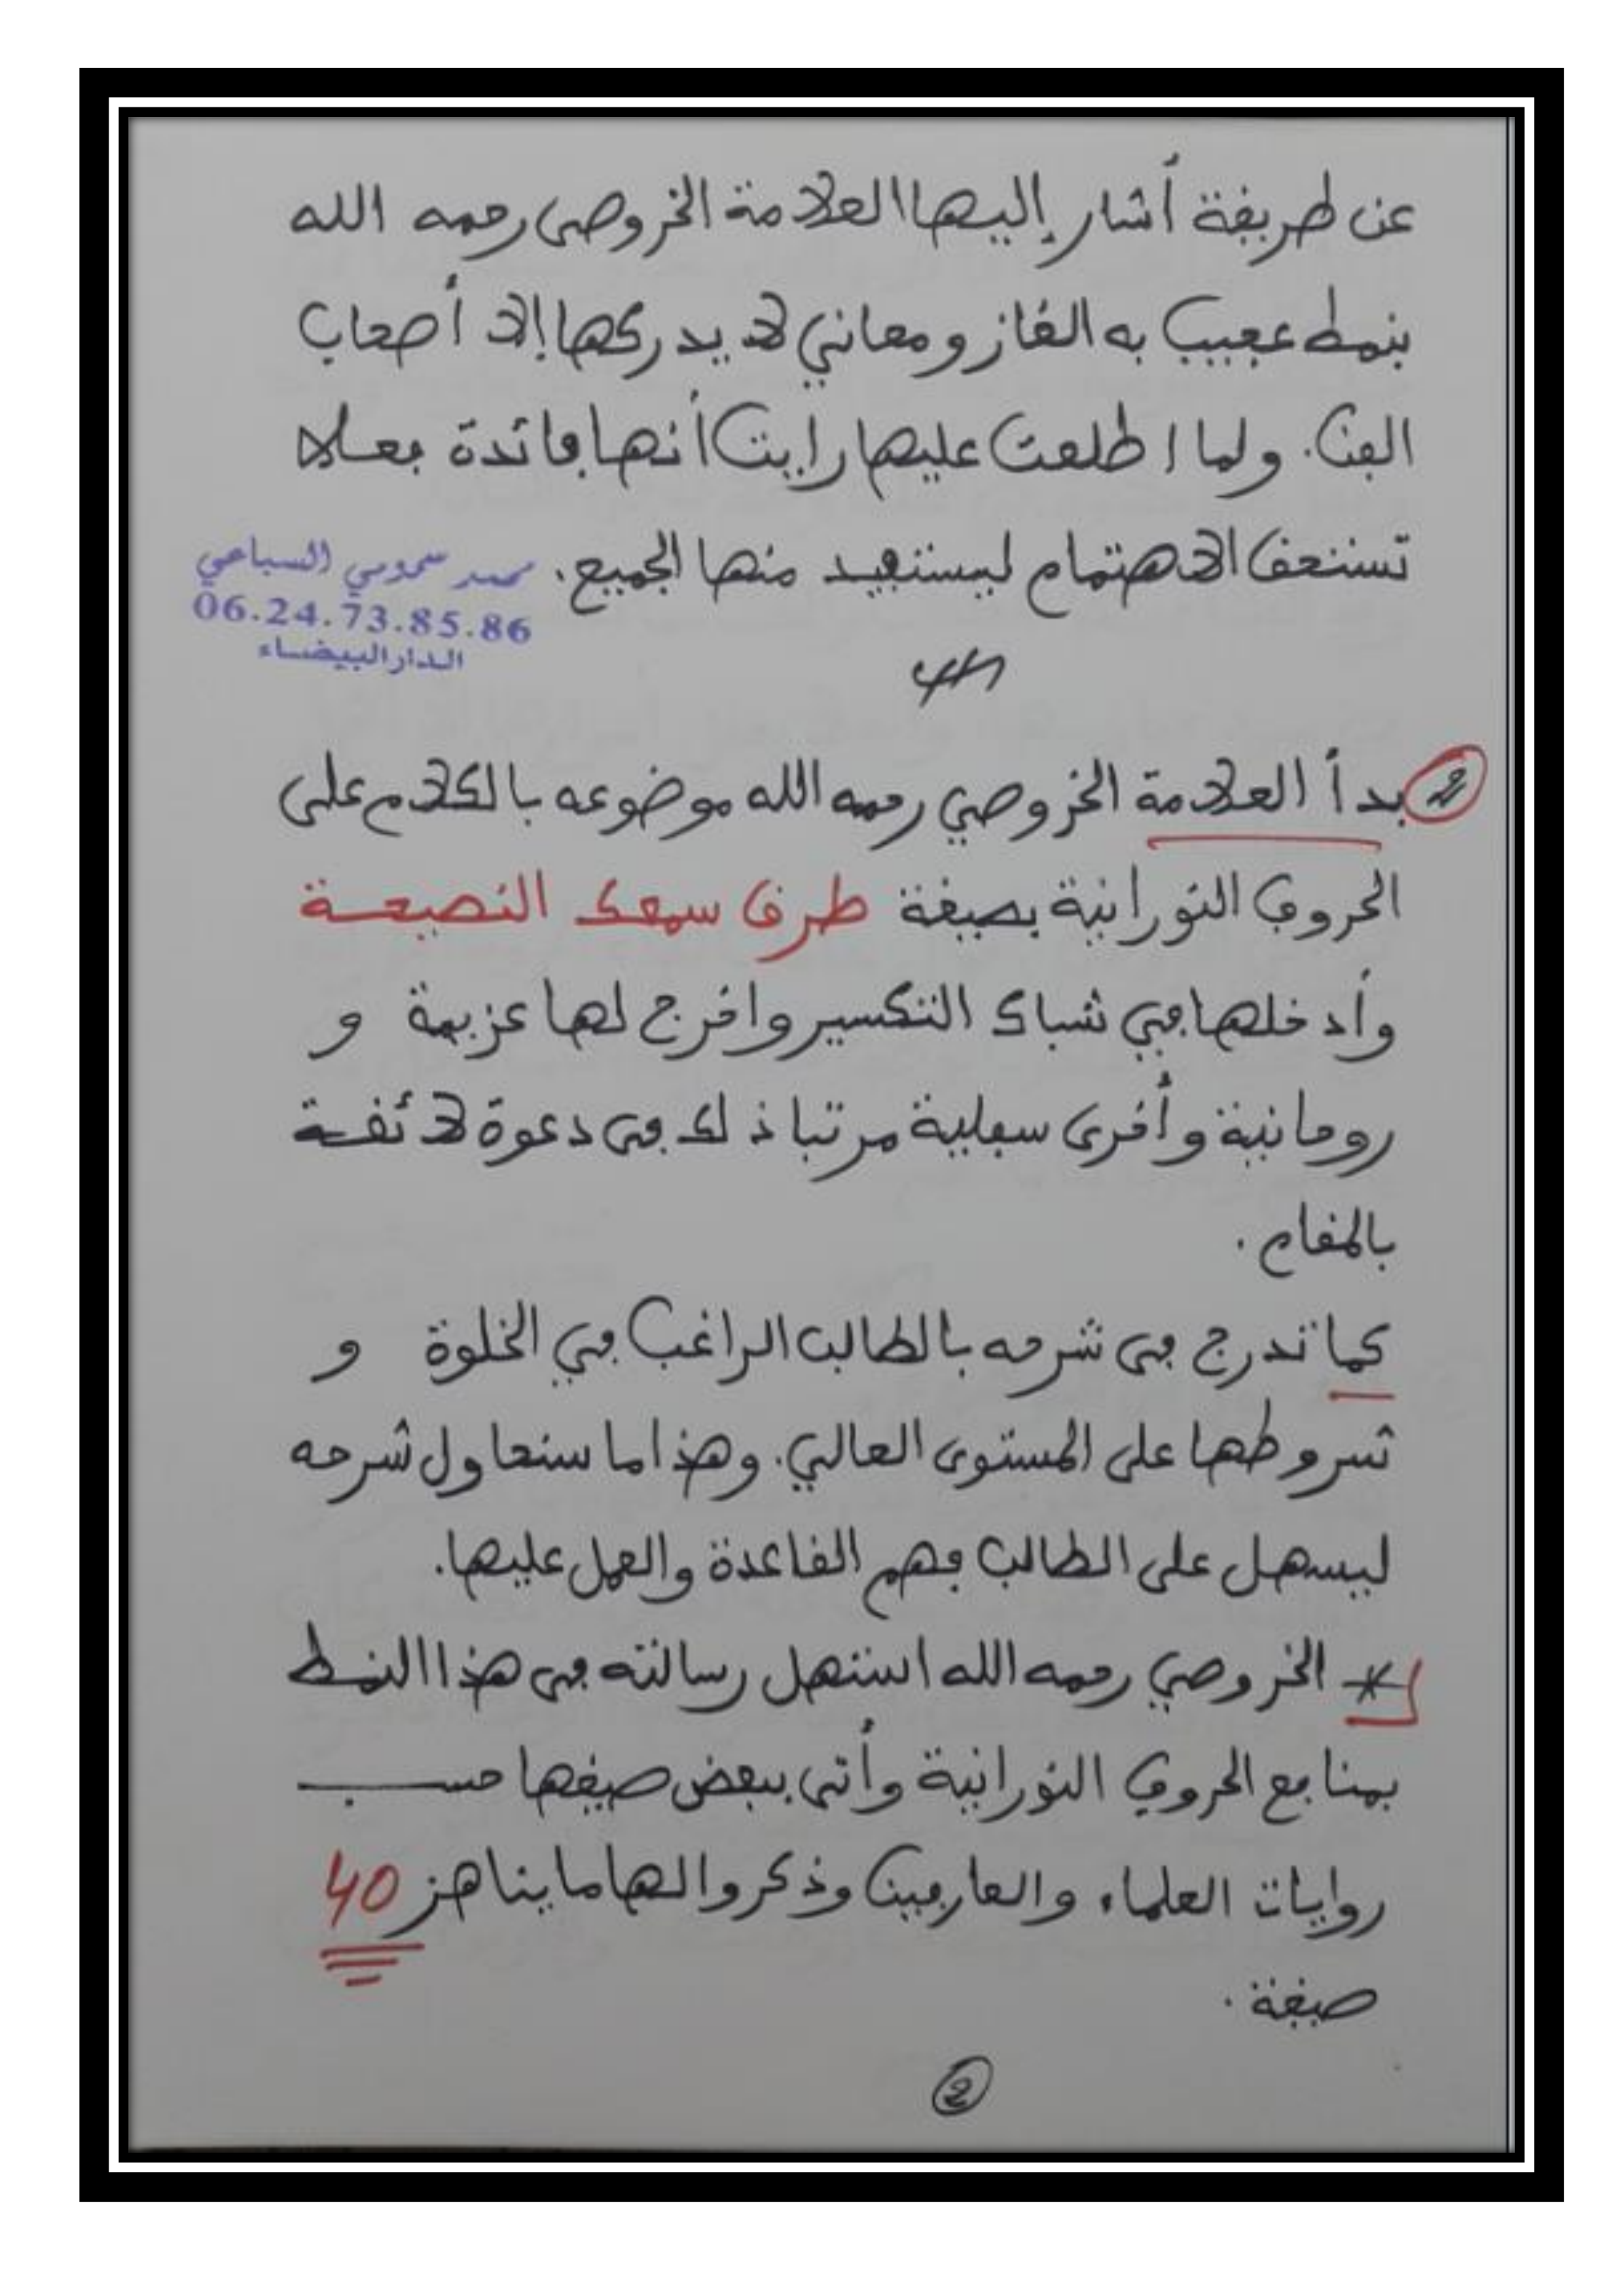 عن طريقة أشار إليها العلامة الخروصي رحمه الله
بنمط عجيب به ألغاز ومعاني لا يدركها إلا أصحاب
الفن. ولما اطلعت عليها رايت أنها فائدة فعلا
تستحق الاهتمام ليستفيد منها الجميع.
محمد سمومي السباعي
06.24.73.85.86
الدار البيضاء
2 بدأ العلامة الخروصي رحمه الله موضوعه بالكلام على
الحروف النورانية بصيغة طرق سمعك النصيحة
وأدخلها في شباك التكسير واخرج لها عزيمة و
روحانية وأخرى سفلية مرتبا ذلك في دعوة لائقة
بالمقام.
كما تدرج في شرحه بالطالب الراغب في الخلوة و
شروطها على المستوى العالي. وهذا ما سنحاول شرحه
ليسهل على الطالب فهم القاعدة والعمل عليها.
* الخروصي رحمه الله استهل رسالته في هذا النمط
بمنافع الحروف النورانية وأتى ببعض صيغها حسب
روايات العلماء والعارفين وذكروا لها ما يناهز 40
صيغة.
2